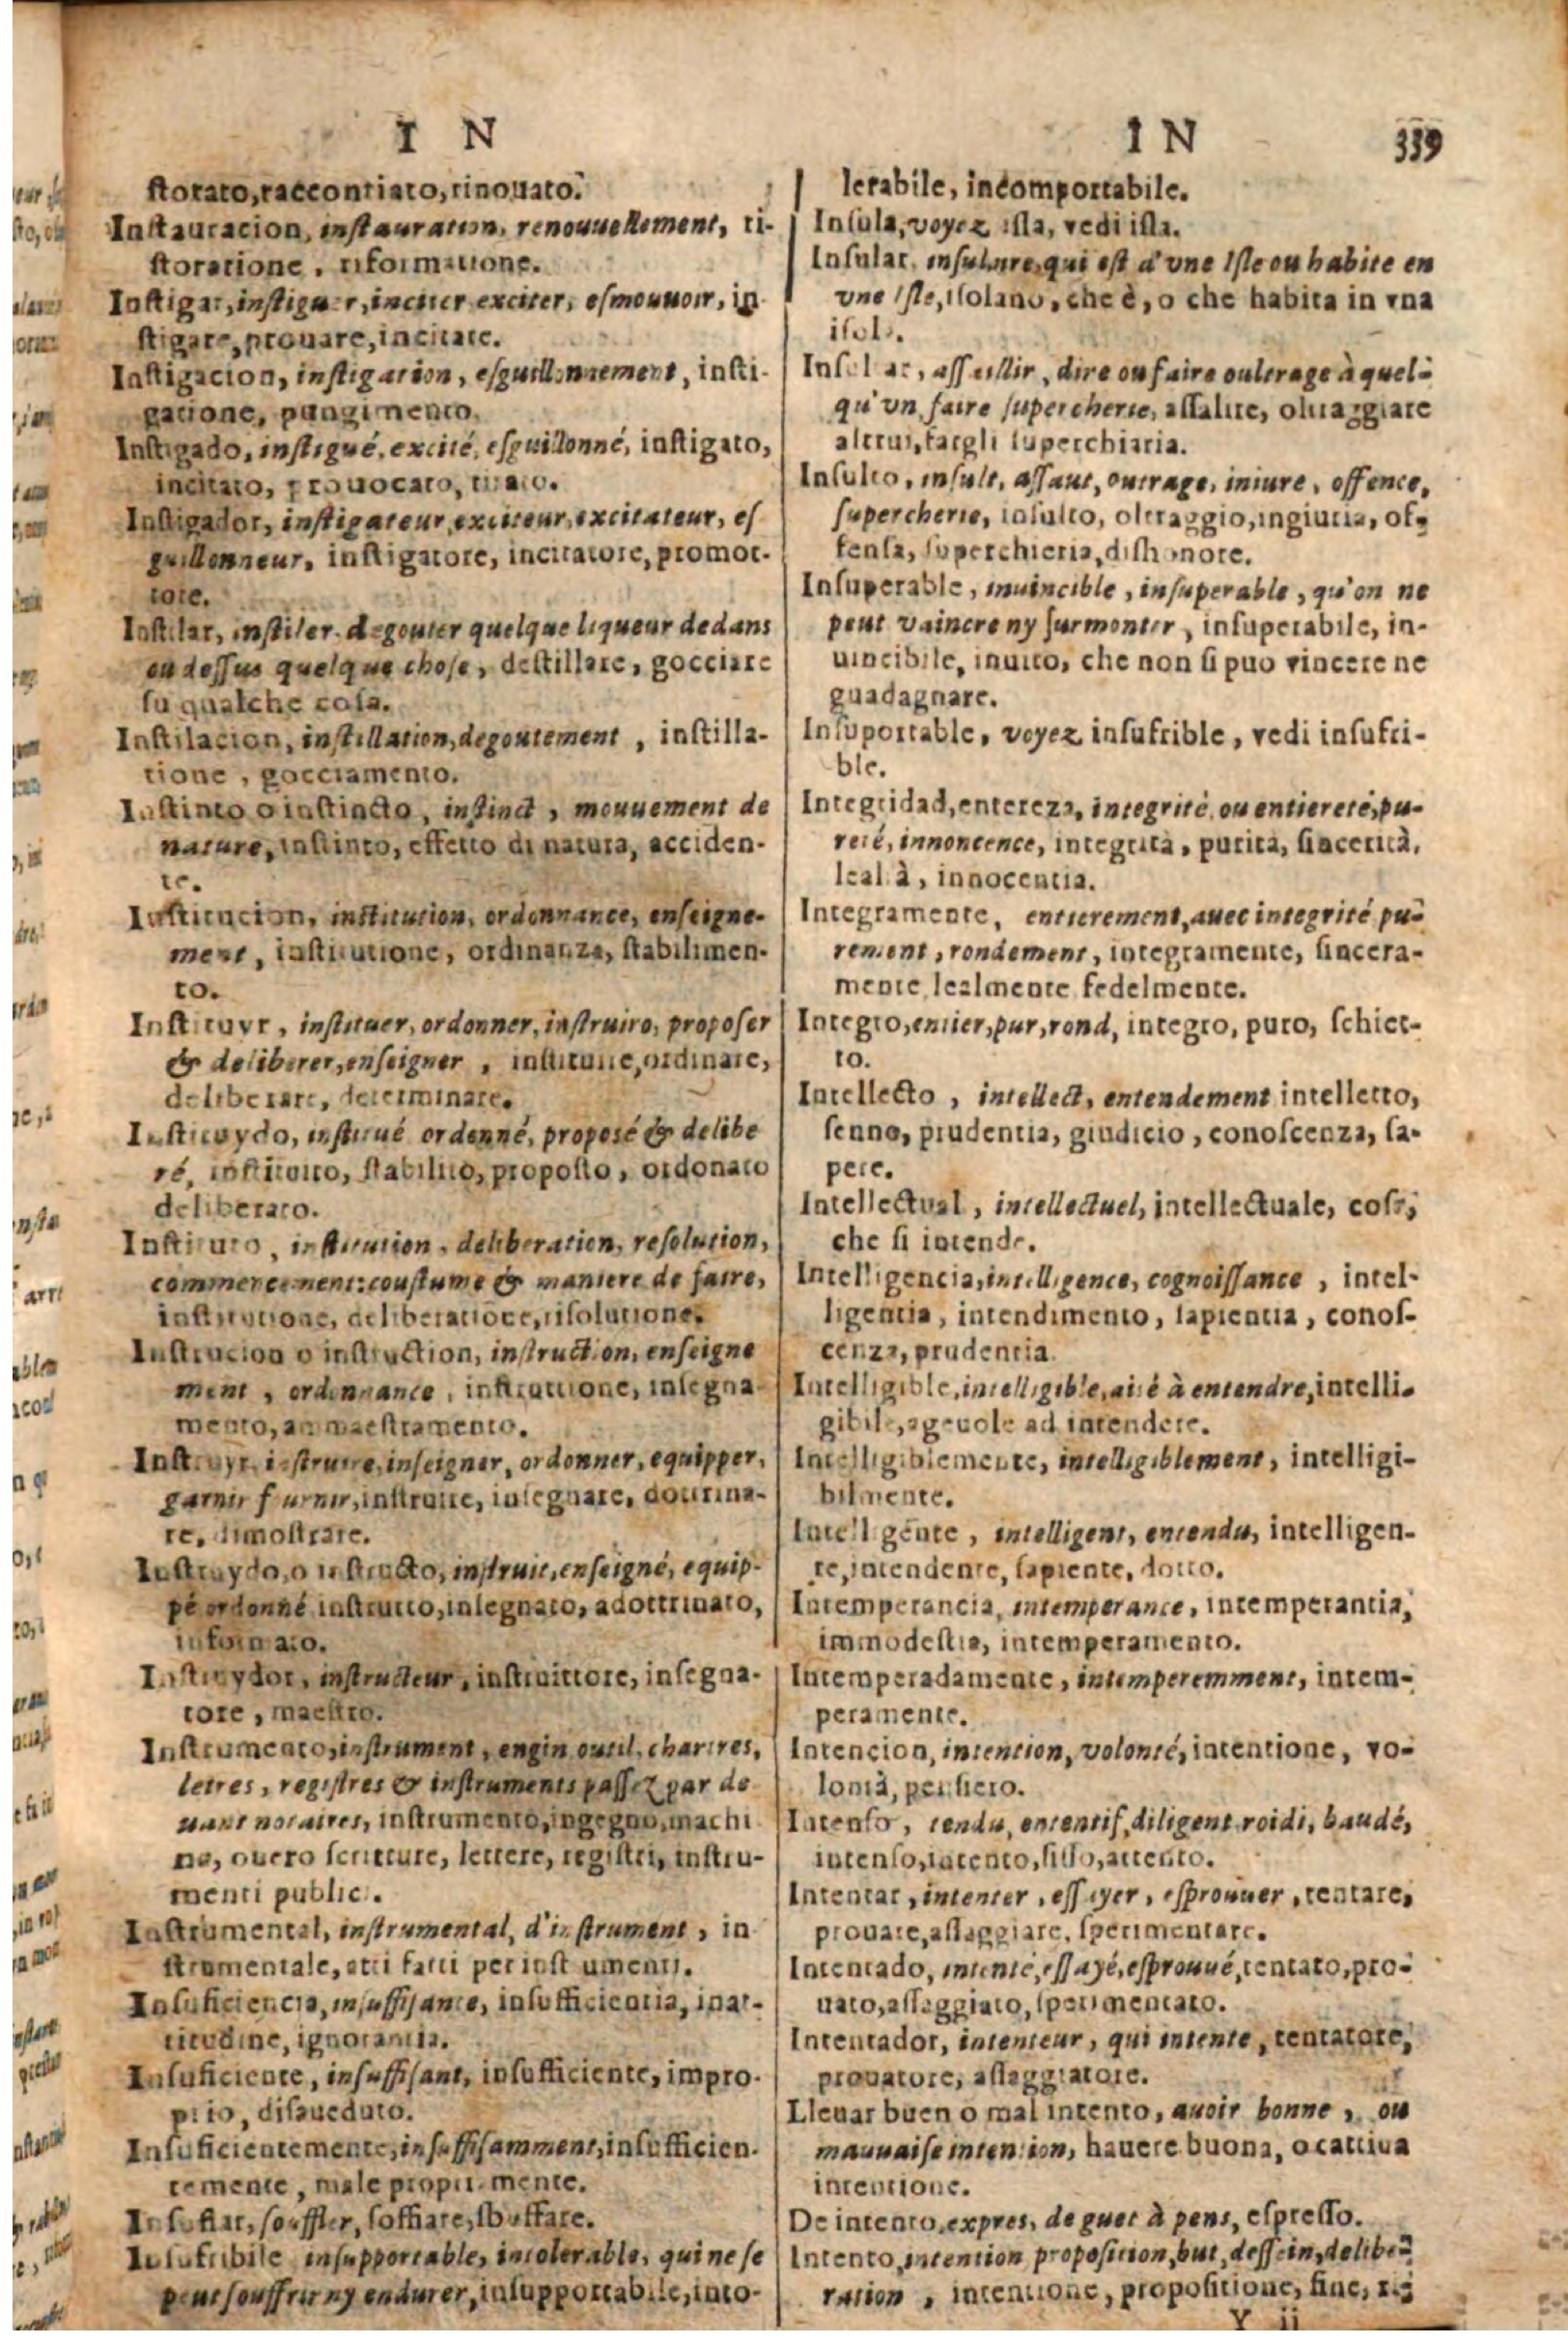 I N
storato, raccontiato, rinouato.
Instauracion, instauration, renouuellement, ri-
storatione, riformatione.
Instigar, instiguer, inciter exciter, esmouuoir, in
stigare, prouare, incitare.
Instigacion, instigation, esguillonnement, insti-
gatione, pungimento.
Instigado, instigué, excité, esguillonné, instigato,
incitato, prouocato, tirato.
Instigador, instigateur, exciteur, excitateur, es
guillonneur, instigatore, incitatore, promot-
tore.
Instilar, instiler, degouter quelque liqueur dedans
ou dessus quelque chose, destillare, gocciare
su qualche cosa.
Instilacion, instillation, degoutement, instilla-
tione, gocciamento.
Instinto o instincto, instinct, mouuement de
nature, instinto, effetto di natura, acciden-
te.
Institucion, institution, ordonnance, enseigne-
ment, institutione, ordinanza, stabilimen-
to.
Instituyr, instituer, ordonner, instruire, proposer
& deliberer, enseigner, instituire, ordinare,
deliberare, determinare.
Instituydo, institué ordonné, proposé & delibe
ré, instituito, stabilito, proposto, ordonato
deliberato.
Instituto, institution, deliberation, resolution,
commencement: coustume & maniere de faire,
institutione, deliberatione, risolutione.
Instrucion o instruction, instruction, enseigne
ment, ordonnance, instruttione, insegna-
mento, ammaestramento.
Instruyr, instruire, inseigner, ordonner, equipper,
garnir fournir, instruire, insegnare, dottrina-
re, dimostrare.
Instruydo, o instructo, instruit, enseigné, equip-
pé ordonné instrutto, insegnato, adottrinato,
informato.
Instruydor, instructeur, instruittore, insegna-
tore, maestro.
Instrumento, instrument, engin outil, chartres,
letres, registres & instruments passez par de
uant notaires, instrumento, ingegno, machi
na, ouero scritture, lettere, registri, instru-
menti public.
Instrumental, instrumental, d'instrument, in
strumentale, atti fatti per instrumenti.
Insuficiencia, insuffisance, insufficientia, inat-
titudine, ignorantia.
Insuficiente, insuffisant, insufficiente, impro-
prio, disaueduto.
Insuficientemente, insuffisamment, insufficien-
temente, male propriamente.
Insuflar, souffler, soffiare, sbuffare.
Insufribile insupportable, intolerable, qui ne se
peut souffrir ny endurer, insupportabile, into-
I N 339
lerabile, incomportabile.
Insula, voyez isla, vedi isla.
Insular, insulaire, qui est d'vne Isle ou habite en
vne Isle, isolano, che è, o che habita in vna
isola.
Insultar, assaillir, dire ou faire oultrage à quel-
qu'vn, faire supercherie, assalire, oltraggiare
altrui, fargli superchiaria.
Insulto, insult, assaut, outrage, iniure, offence,
supercherie, insulto, oltraggio, ingiuria, of-
fensa, superchieria, dishonore.
Insuperable, inuincible, insuperable, qu'on ne
peut vaincre ny surmonter, insuperabile, in-
uincibile, inuito, che non si puo vincere ne
guadagnare.
Insuportable, voyez insufrible, vedi insufri-
ble.
Integridad, entereza, integrité ou entiereté, pu-
reté, innoncence, integrità, purità, sincerità,
lealtà, innocentia.
Integramente, entierement, auec integrité pu-
rement, rondement, integramente, sincera-
mente lealmente fedelmente.
Integro, entier, pur, rond, integro, puro, schiet-
to.
Intellecto, intellect, entendement intelletto,
senno, prudentia, giudicio, conoscenza, sa-
pere.
Intellectual, intellectuel, intellectuale, cosa,
che si intende.
Intelligencia, intelligence, cognoissance, intel-
ligentia, intendimento, sapientia, conos-
cenza, prudentia.
Intelligible, intelligible, aisé à entendre, intelli-
gibile, ageuole ad intendere.
Intelligiblemente, intelligiblement, intelligi-
bilmente.
Intelligente, intelligent, entendu, intelligen-
te, intendente, sapiente, dotto.
Intemperancia, intemperance, intemperantia,
immodestia, intemperamento.
Intemperadamente, intemperemment, intem-
peramente.
Intencion, intention, volonté, intentione, vo-
lontà, pensiero.
Intenso, tendu, ententif, diligent roidi, baudé,
intenso, intento, fisso, attento.
Intentar, intenter, essayer, esprouuer, tentare,
prouare, assaggiare, sperimentare.
Intentado, intenté, essayé, esprouué, tentato, pro-
uato, assaggiato, sperimentato.
Intentador, intenteur, qui intente, tentatore,
prouatore, assaggiatore.
Lleuar buen o mal intento, auoir bonne, ou
mauuaise intention, hauere buona, o cattiua
intentione.
De intento, expres, de guet à pens, espresso.
Intento, intention proposition, but, dessein, delibe-
ration, intentione, propositione, fine, ri-
Y ij